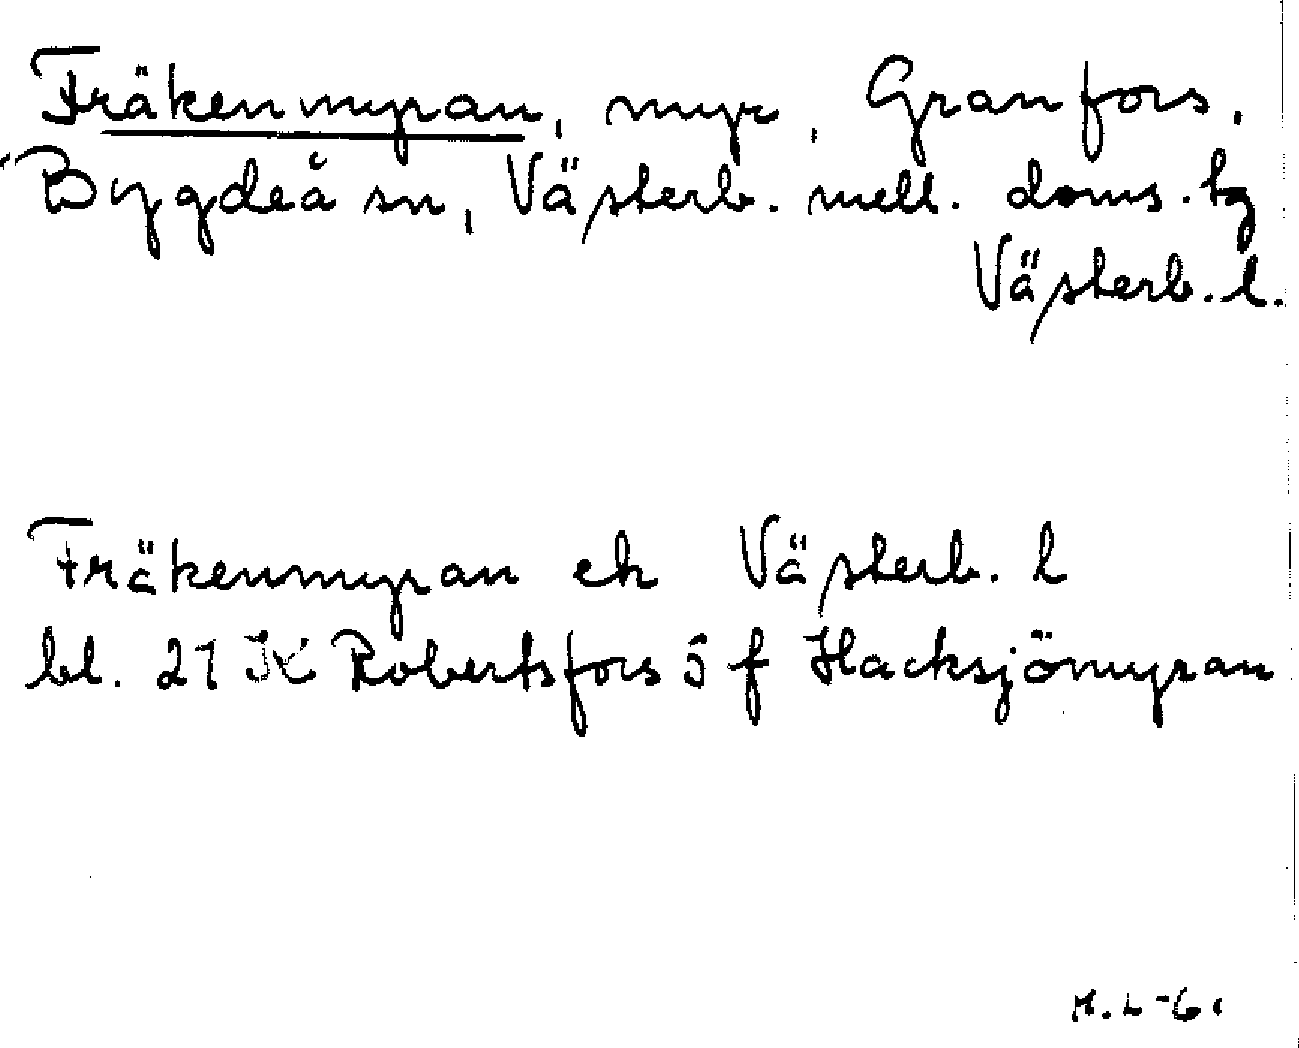 Fräkenmyran, myr, Granfors,
Bygdeå sn, Västerb. mell. doms. tg
Västerb. l.
Fräkenmyran ek Västerb. l
bl. 21 K Robertsfors 5 f Hacksjömyran